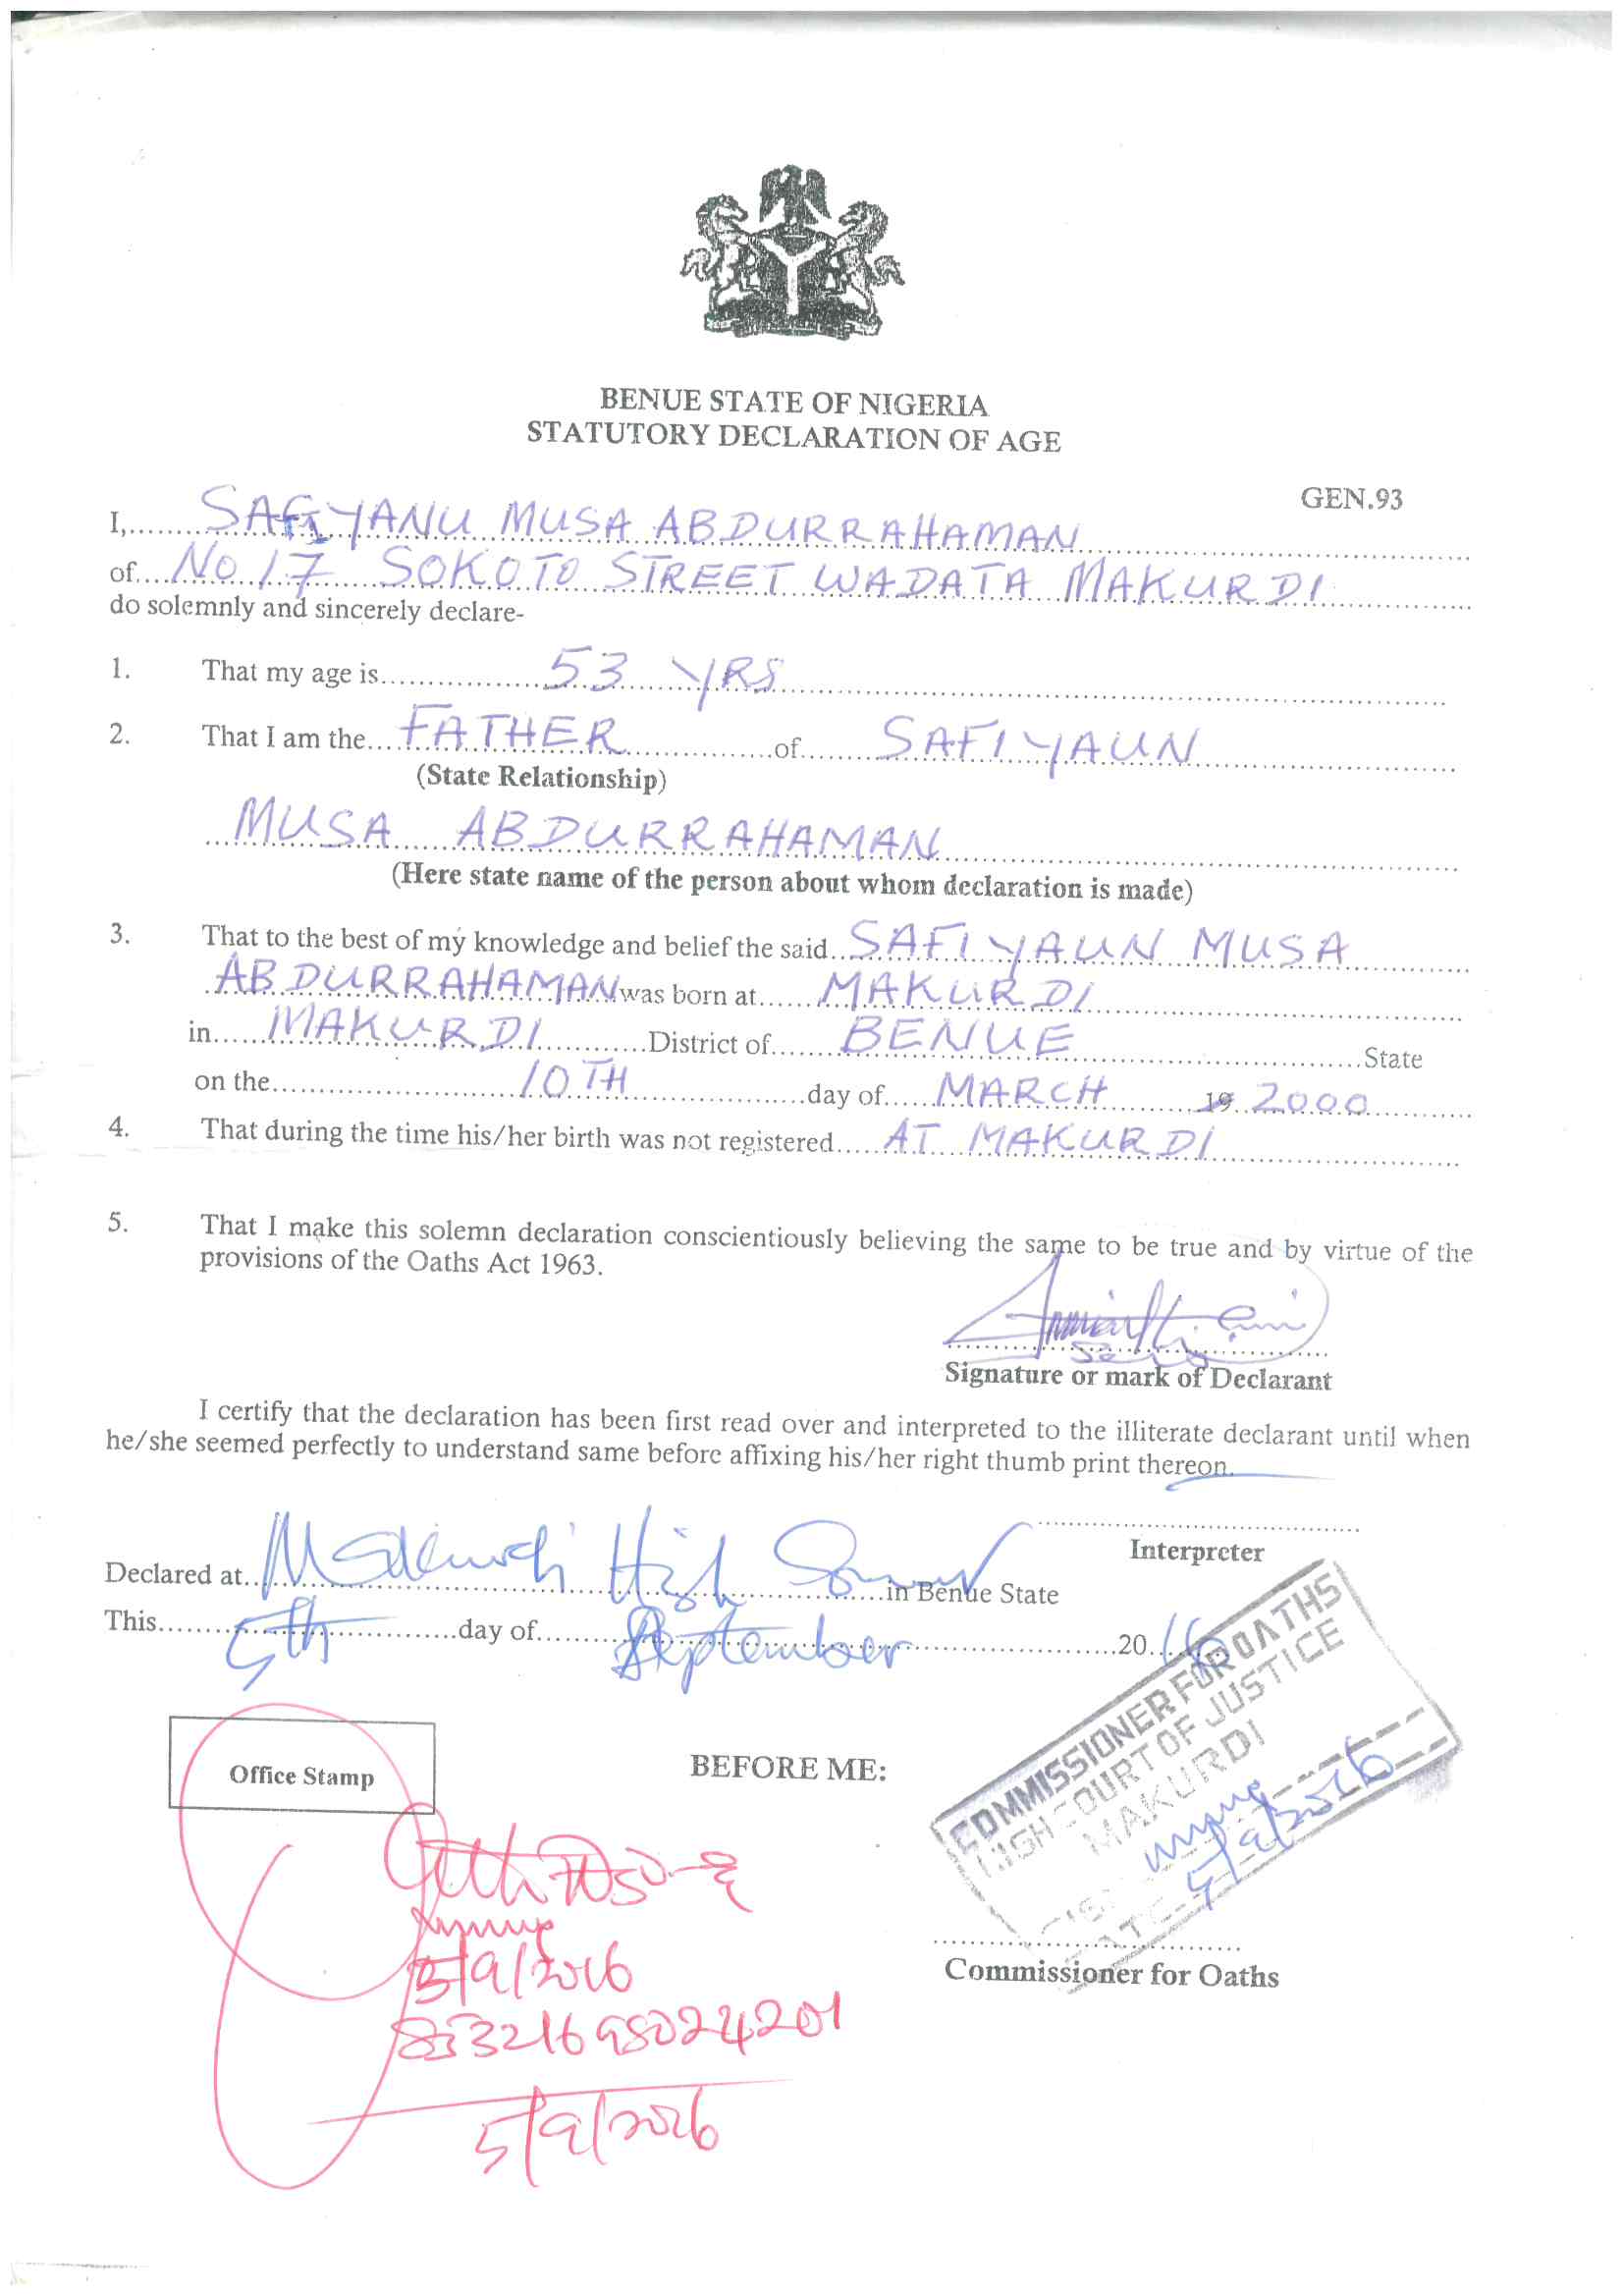 BENUE STATE OF NIGERIA
STATUTORY DECLARATION OF AGE
GEN.93
I, SAFIYANU MUSA ABDURRAHAMAN
of No 17 SOKOTO STREET WADATA MAKURDI
do solemnly and sincerely declare-
1. That my age is 53 YRS
2. That I am the FATHER of SAFIYAUN
(State Relationship)
MUSA ABDURRAHAMAN
(Here state name of the person about whom declaration is made)
3. That to the best of my knowledge and belief the said SAFIYAUN MUSA
ABDURRAHAMAN was born at MAKURDI
in MAKURDI District of BENUE State
on the 10TH day of MARCH 19 2000
4. That during the time his/her birth was not registered AT MAKURDI
5. That I make this solemn declaration conscientiously believing the same to be true and by virtue of the
provisions of the Oaths Act 1963.
Signature or mark of Declarant
I certify that the declaration has been first read over and interpreted to the illiterate declarant until when
he/she seemed perfectly to understand same before affixing his/her right thumb print thereon.
Interpreter
Declared at Makurdi High in Benue State
This 5th day of September 2016
COMMISSIONER FOR OATHS
HIGH COURT OF JUSTICE
MAKURDI
SIGN
DATE 5/9/2016
Office Stamp
BEFORE ME:
5/9/2016
Commissioner for Oaths
5/9/2016